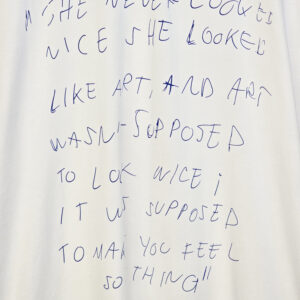 "SHE NEVER LOOKED
NICE SHE LOOKED
LIKE ART, AND ART
WASN'T SUPPOSED
TO LOK NICE ;
IT WS SUPPOSED
TO MAK YOU FEEL
SOTHING"